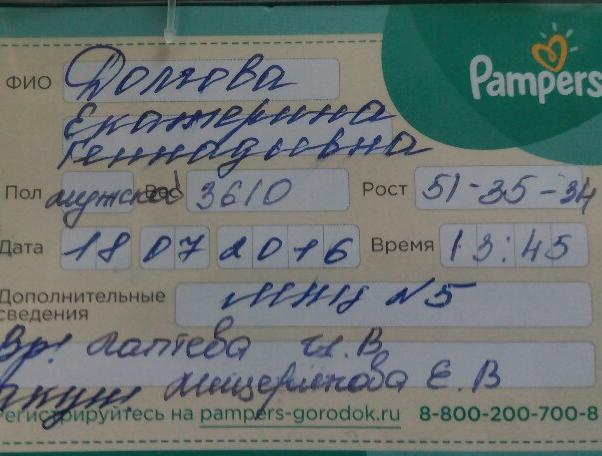 Pampers
ФИО Долгова
Екатерина
Геннадиевна
Пол мужской Вес 3610 Рост 51-35-34
Дата 18 07 2016 Время 13:45
Дополнительные сведения №5
Вр. Лаптева И. В
акуш Мищерякова Е. В
Регистрируйтесь на pampers-gorodok.ru 8-800-200-700-8